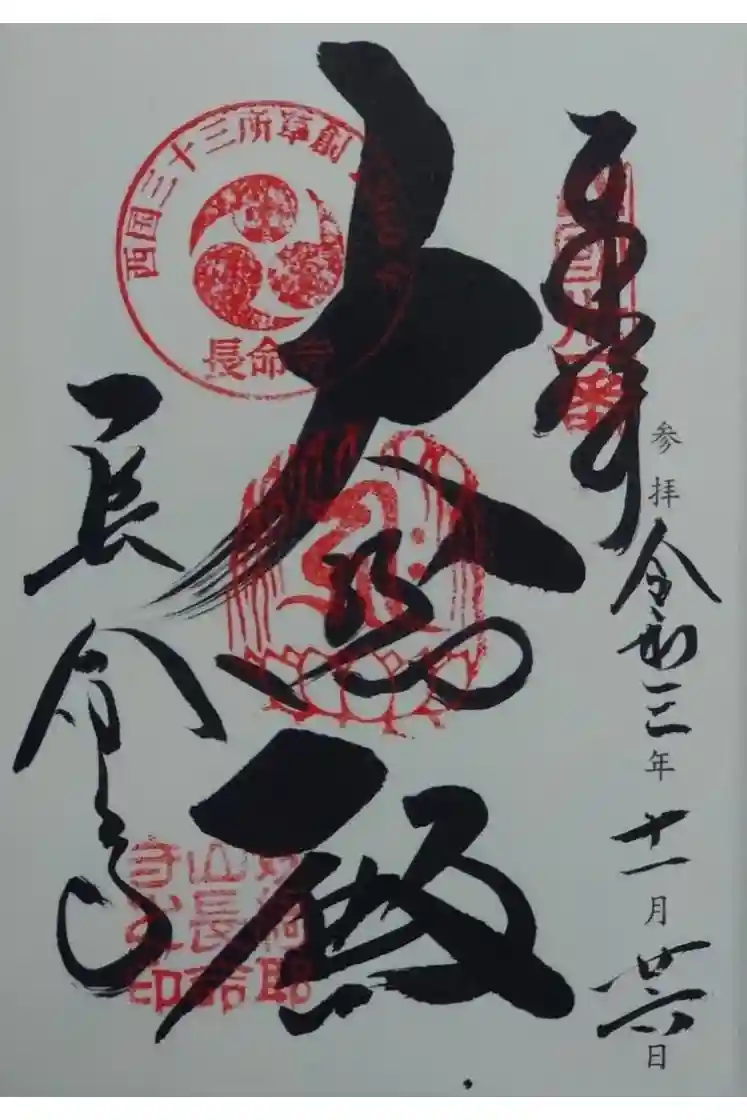 奉拝
参拝令和三年十一月廿六日
大悲殿
長命寺
西国三十三所草創
長命寺
山長命
寺之印